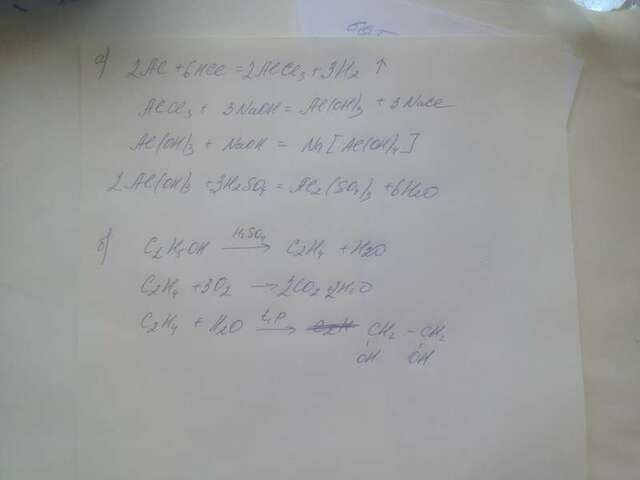 а) 2Al + 6HCl = 2AlCl₃ + 3H₂ ↑
AlCl₃ + 3NaOH = Al(OH)₃ + 3NaCl
Al(OH)₃ + NaOH = Na[Al(OH)₄]
2Al(OH)₃ + 3H₂SO₄ = Al₂(SO₄)₃ + 6H₂O
б) C₂H₅OH —H₂SO₄→ C₂H₄ + H₂O
C₂H₄ + 3O₂ → 2CO₂ 2H₂O
C₂H₄ + H₂O —t, p→ CH₂ – CH₂
OH OH